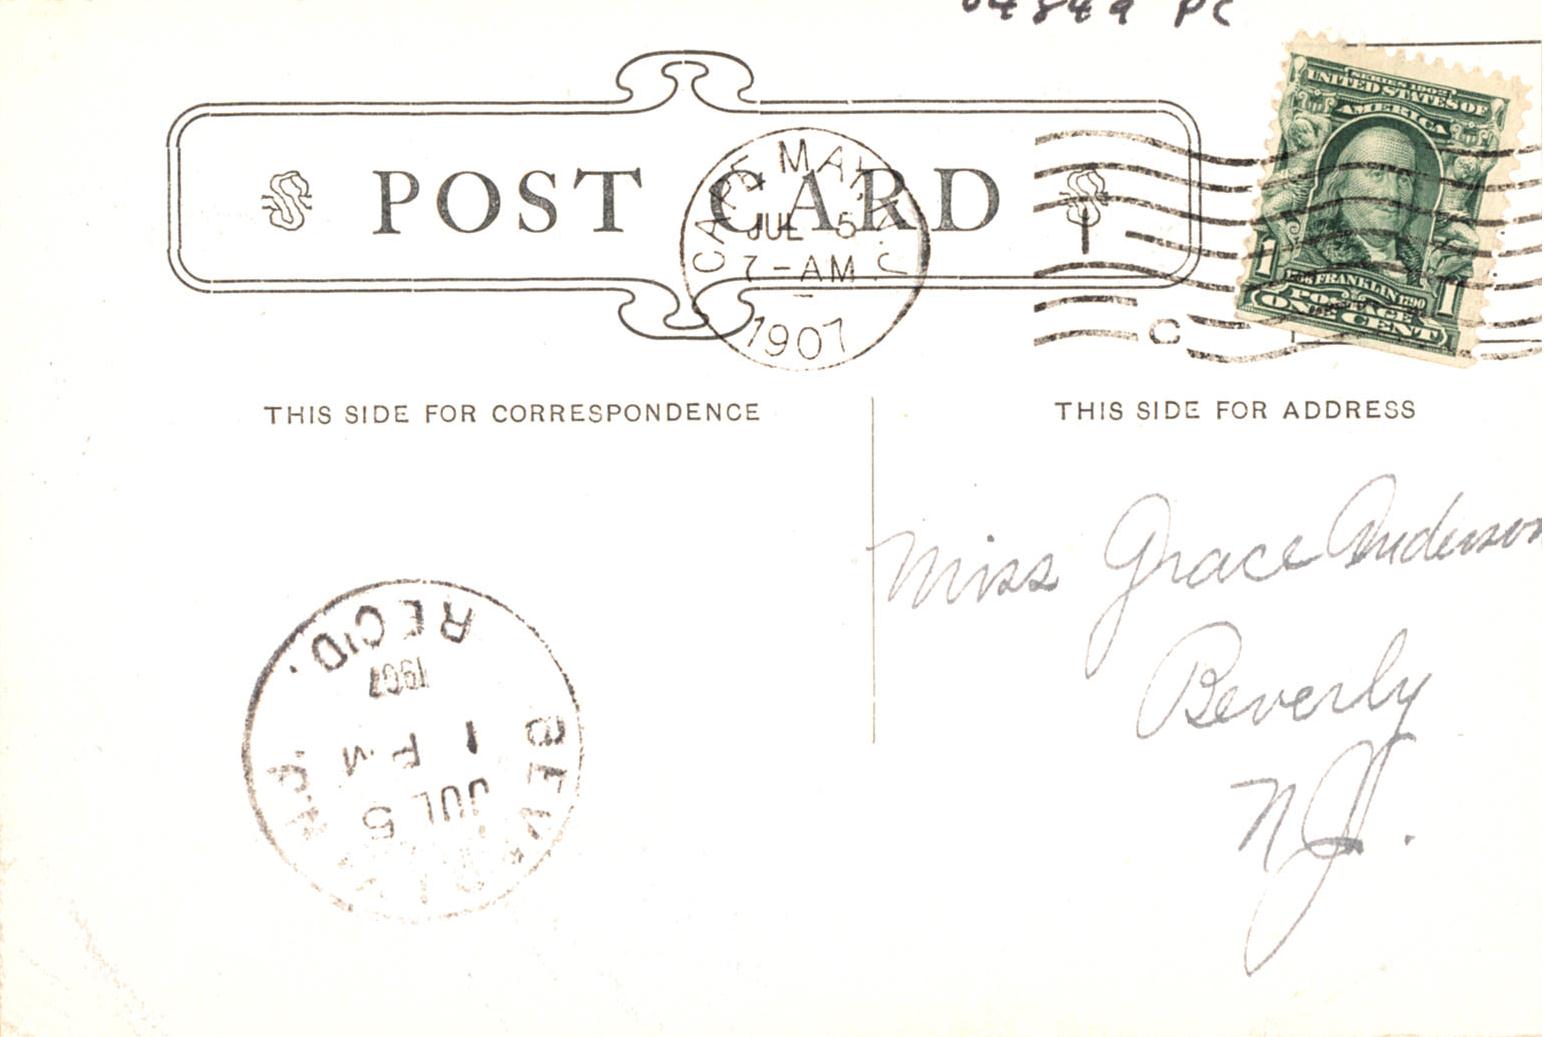 PC
SERIES 1902
UNITED STATES OF
AMERICA
POST CARD
CAPE MAY, N.J.
JUL 5
7-AM
1907
C
1 1
FRANKLIN 1790
POSTAGE
ONE CENT
THIS SIDE FOR CORRESPONDENCE
THIS SIDE FOR ADDRESS
Miss Grace Anderson
Beverly
N.J.
BEVERLY, N.J.
JUL 5
1 PM
1907
REC'D.